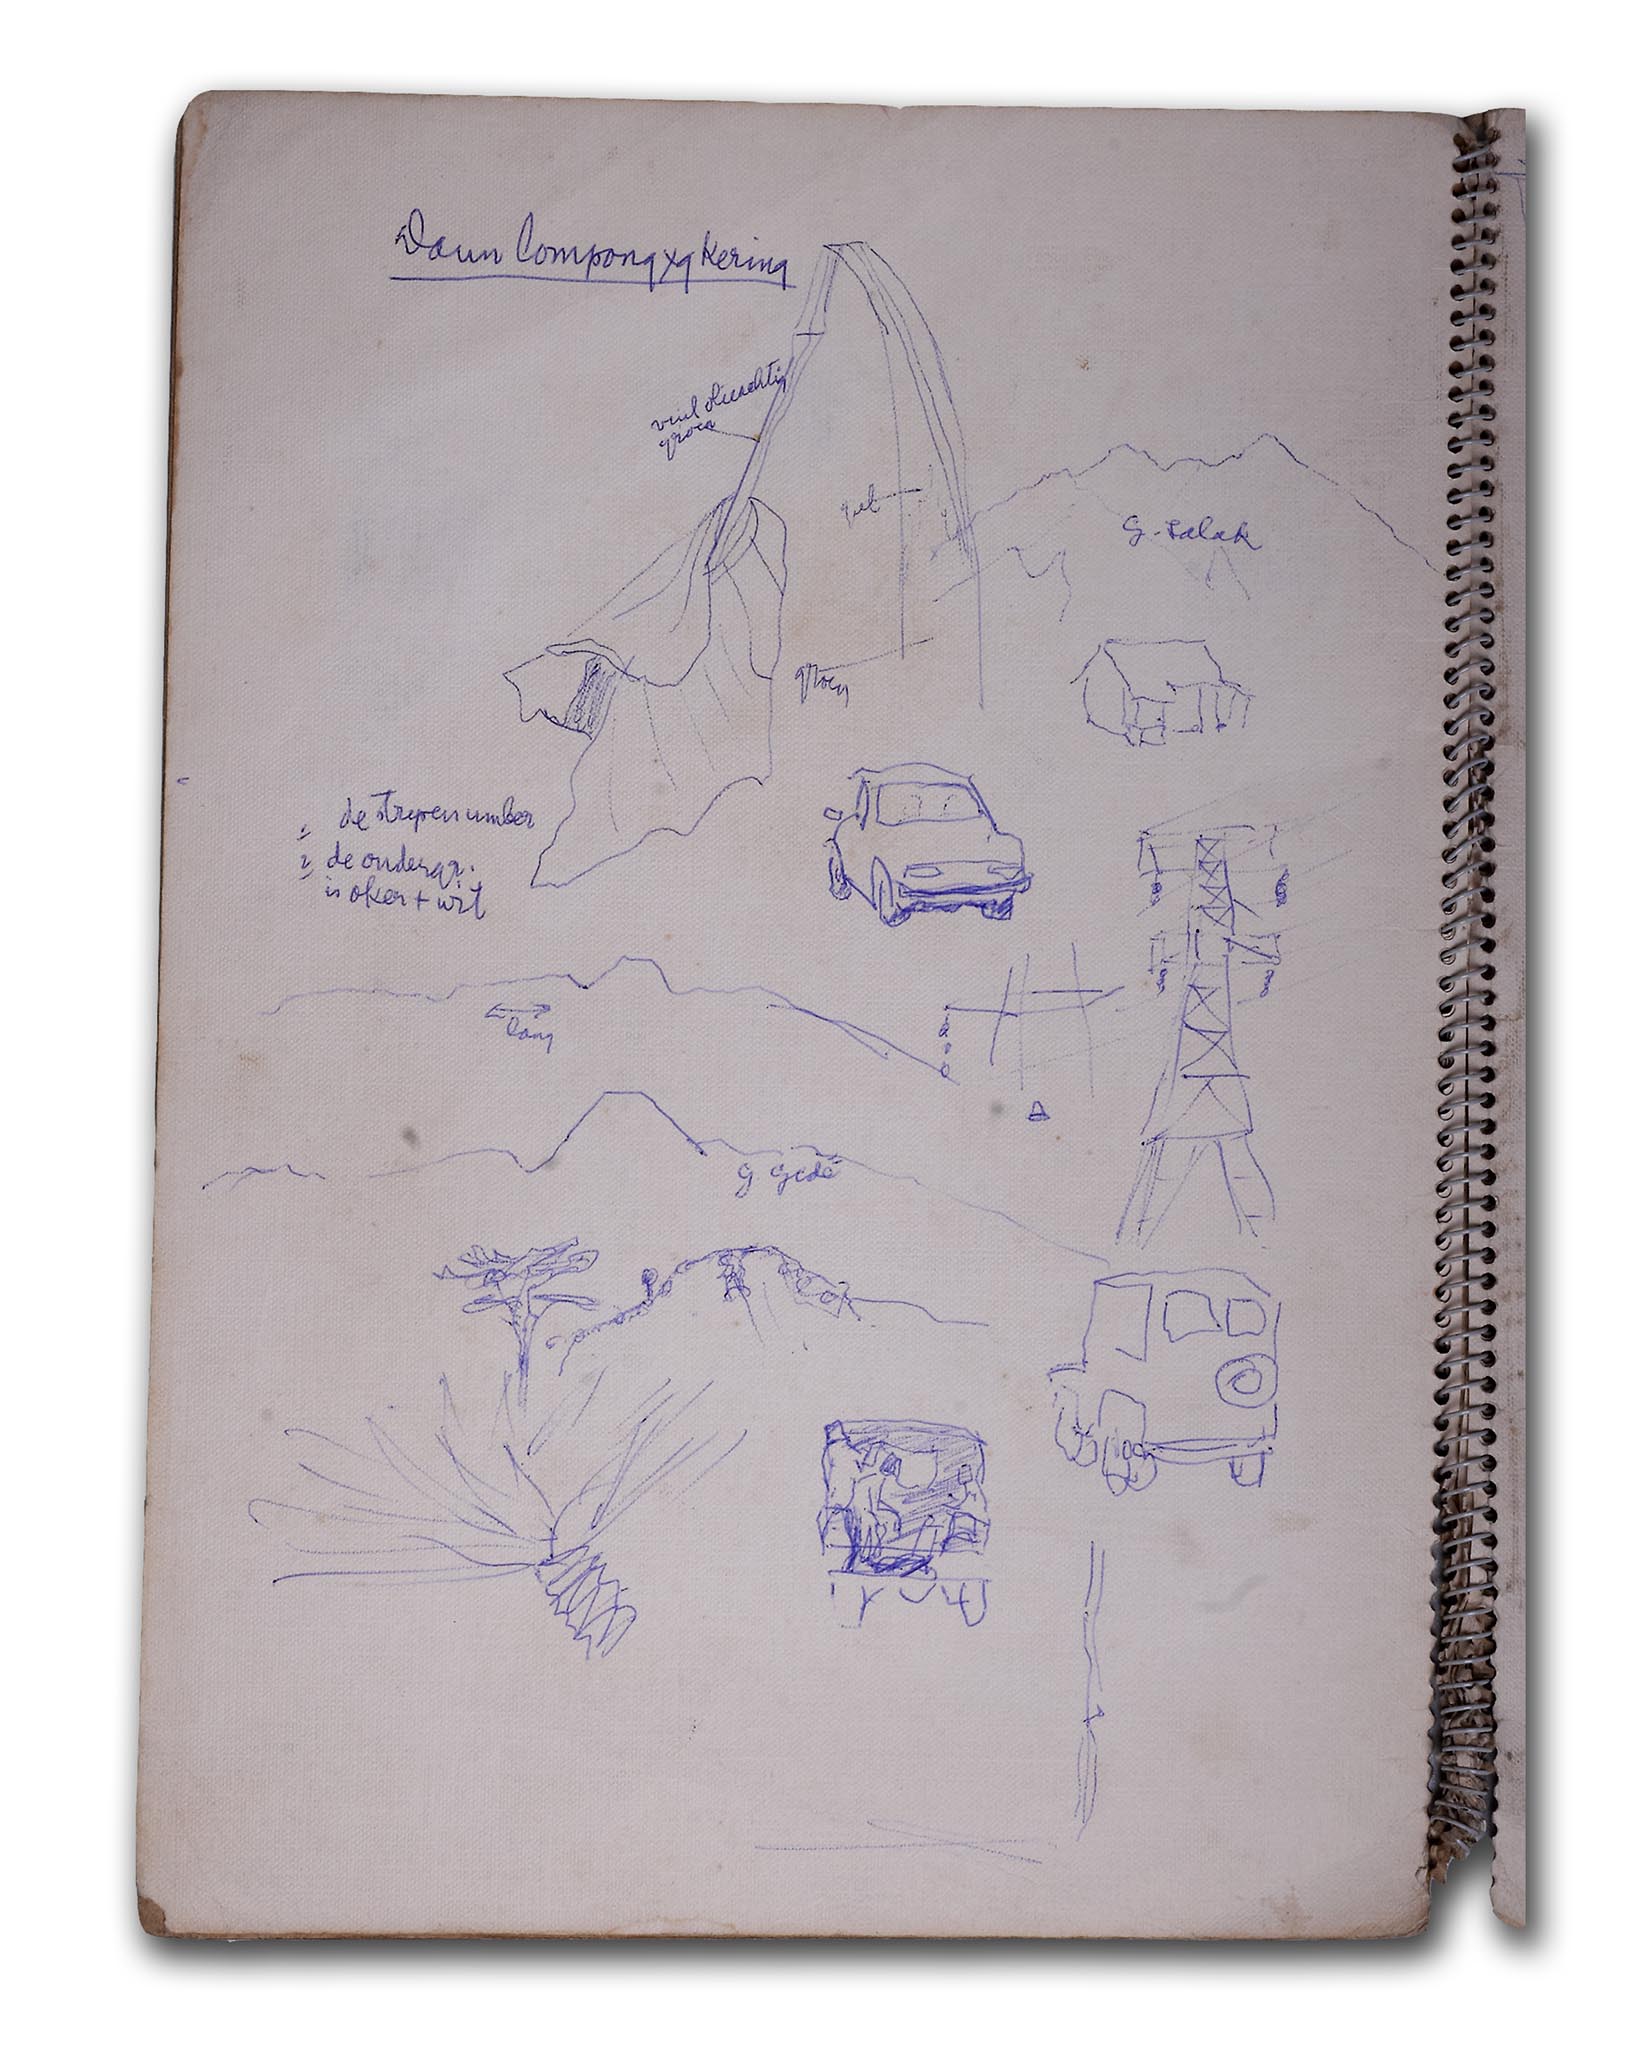 Daun Compong yg Kering
groen
geel
G. Salak
groen
1 de strepen umber
2 de ondergr.
is oker + wit
lang
G Gedé